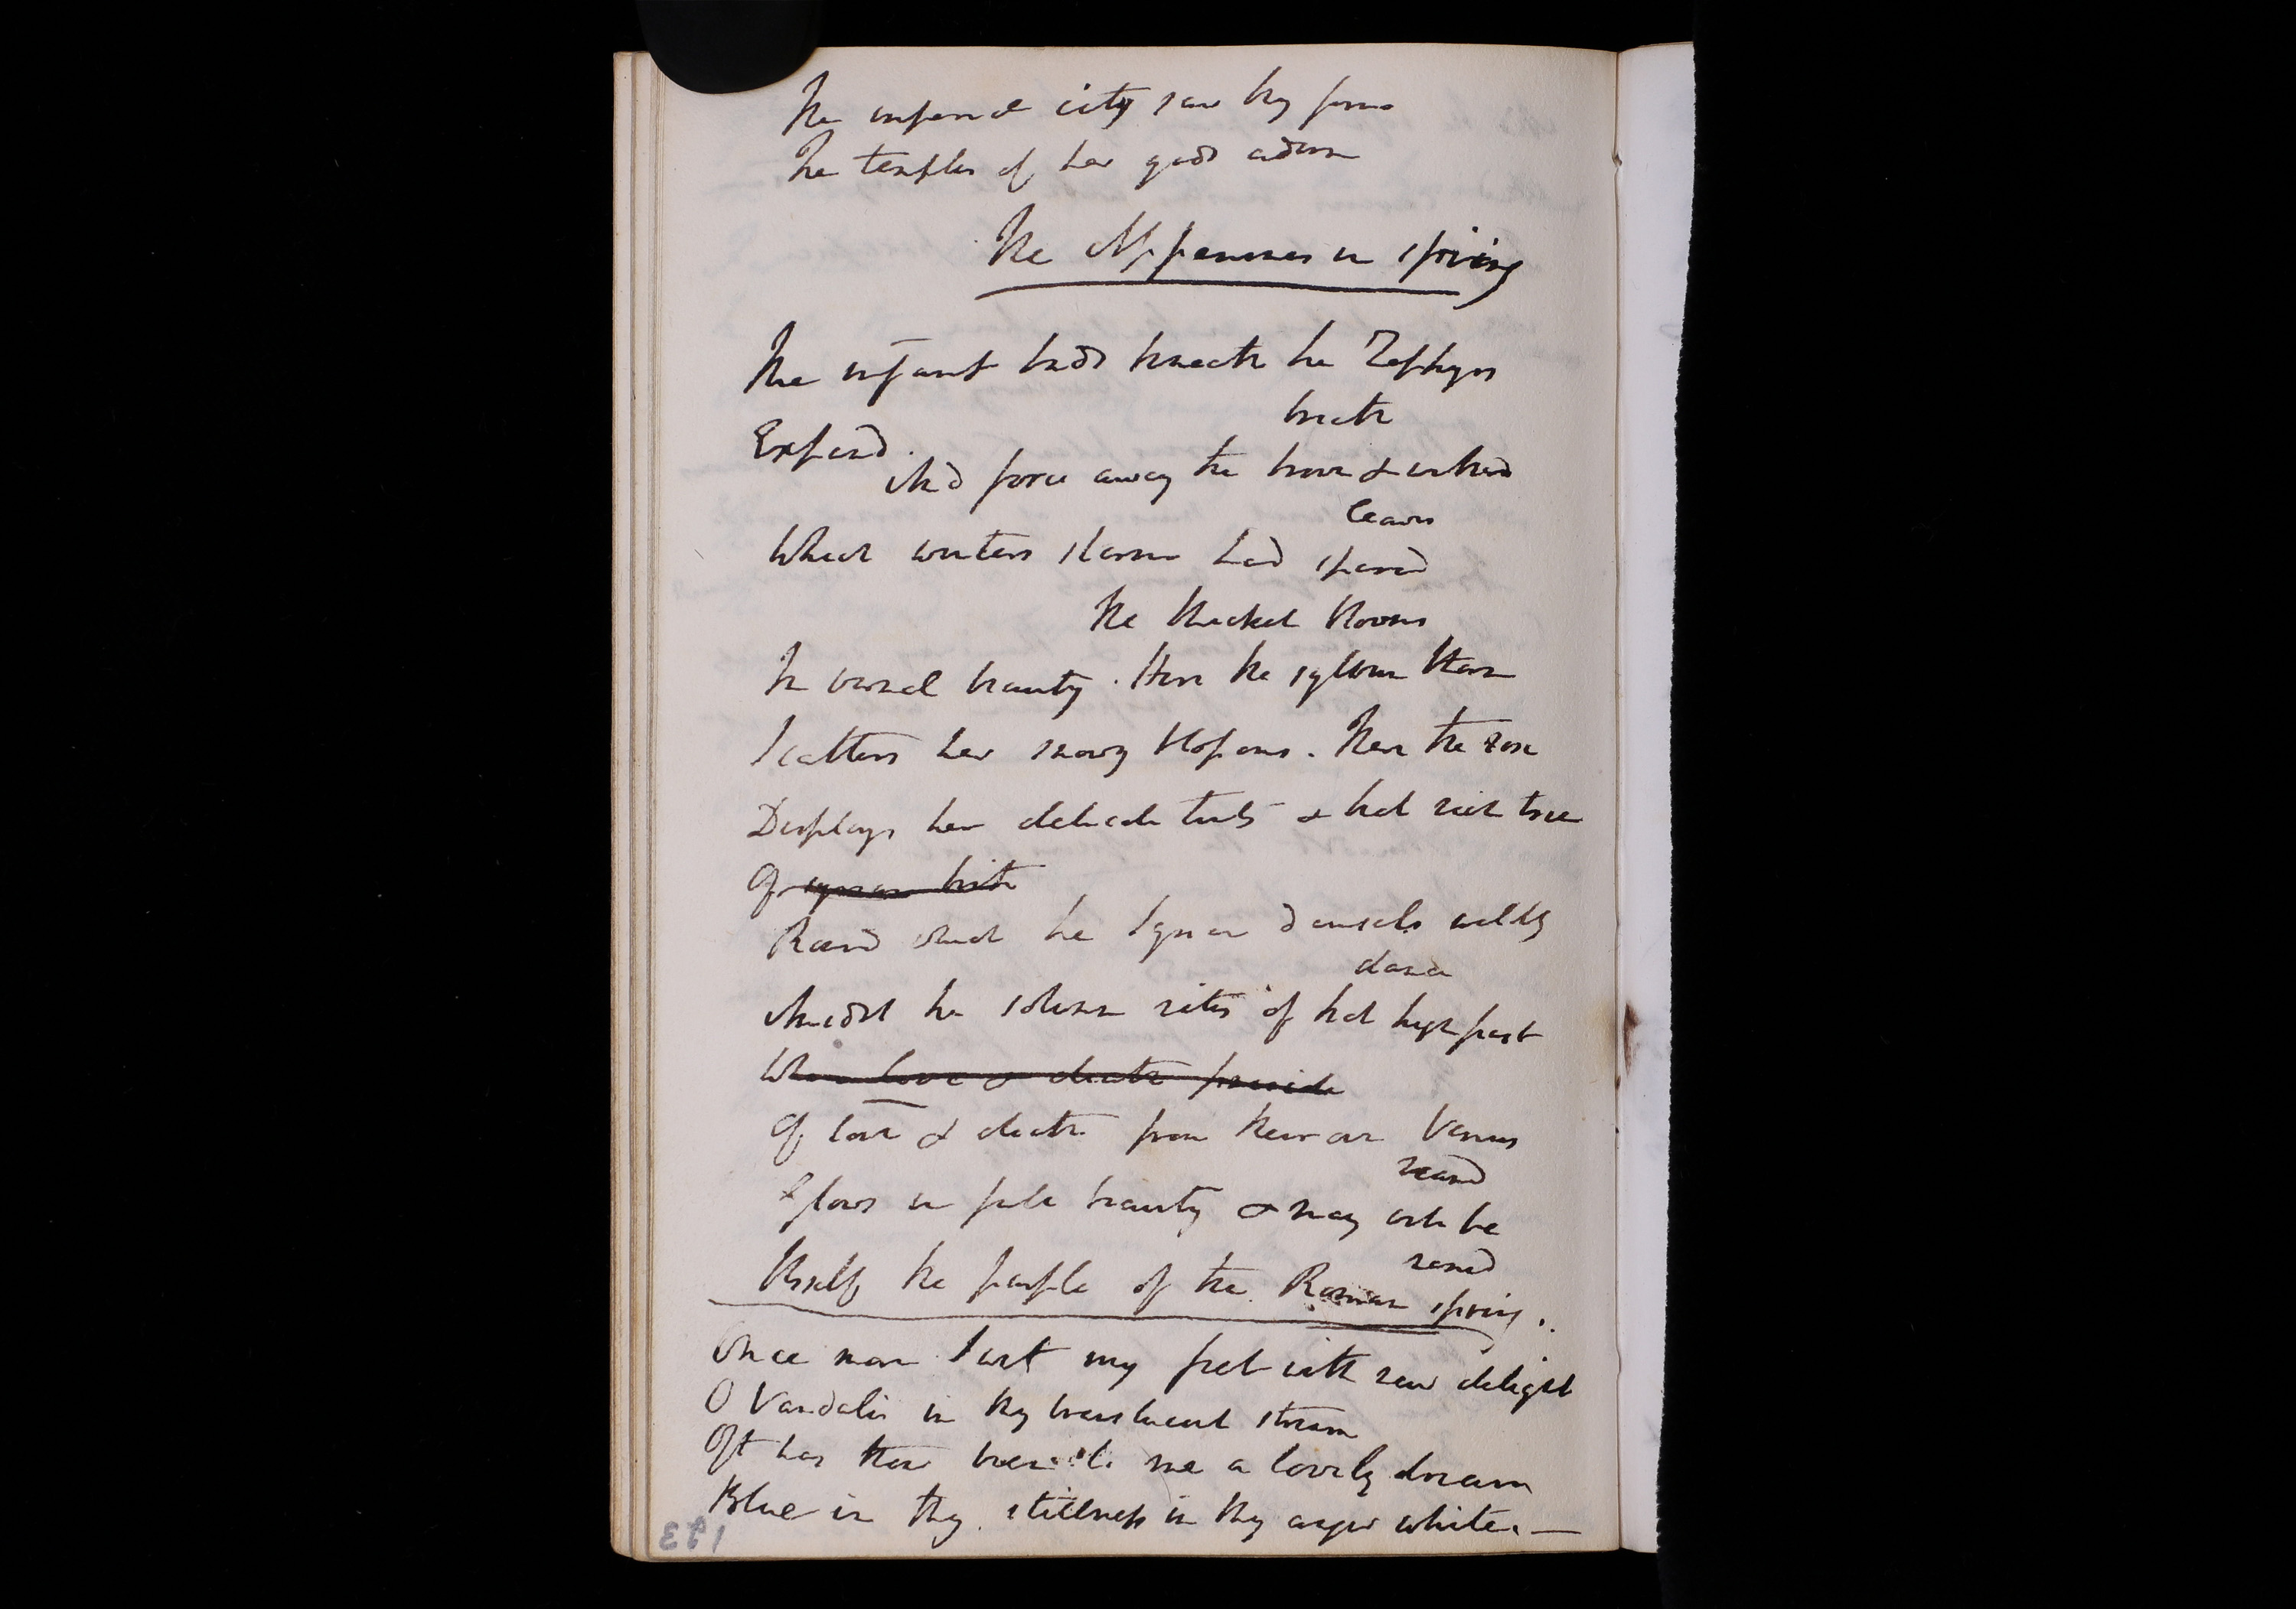 The imperial city saw thy form
The temples of her gods adorn
The Appenines in spring
The infant buds beneath the Zephyrs
breath
Expand.
And force away the brown & withered
leaves
Which winters storm had spared
The thicket blooms
In vernal beauty. Here the sylvan thorn
Scatters her snowy blossoms. There the rose
Displays her delicate tints & that rich tree
Of
Round which the Tyrian damsels wildly
dance
Amidst the solemn rites of that high feast
When love & death preside
Of love & death from thence our Venus
reared
Glows in pale beauty & may well be
named
Itself the purple of the Roman spring.
Once more I wet my feet with new delight
O Vandalis in thy translucent stream
Oft has thou been to me a lovely dream
Blue in thy stillness in thy anger white. —
193